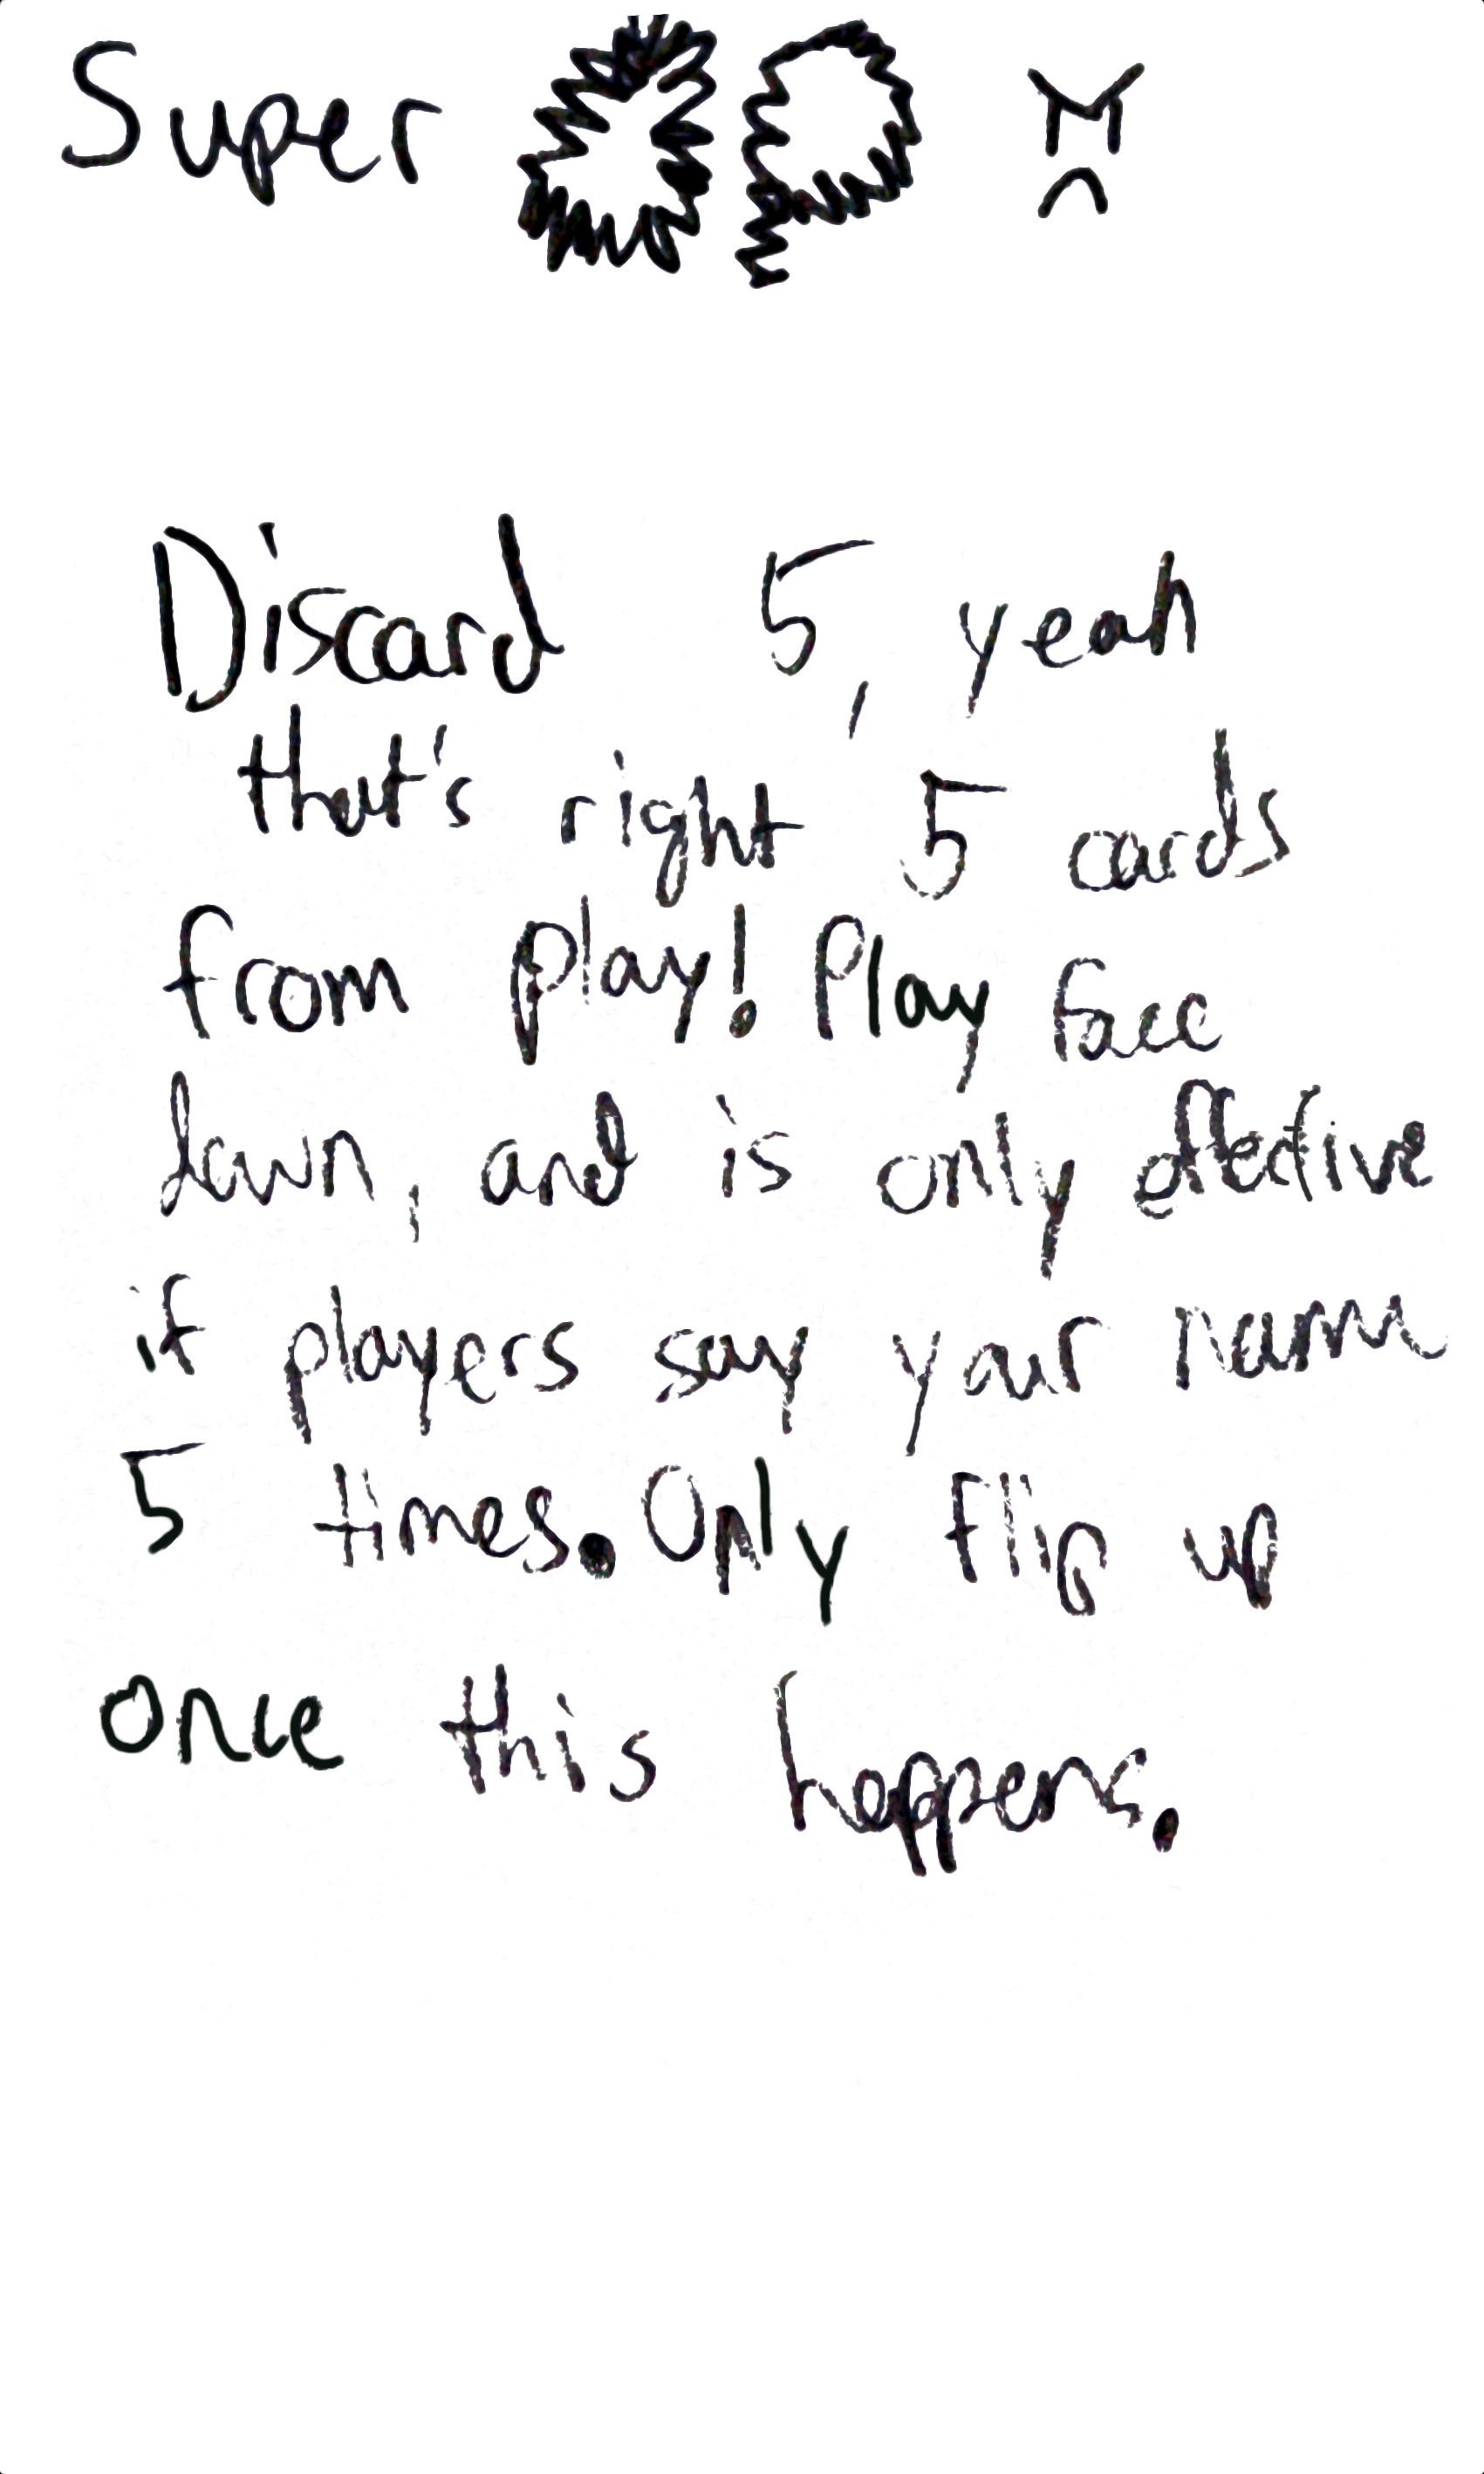 Super OP
Discard 5, yeah
that's right 5 cards
from play! Play face
down, and is only effective
if players say your name
5 times. Only flip up
once this happens.